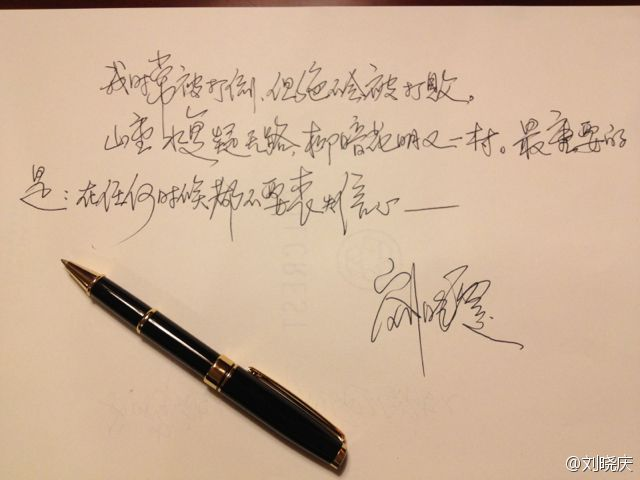 我时常被打倒，但绝不会被打败。
山重水复疑无路，柳暗花明又一村。最重要的
是：在任何时候都不要丧失信心——
刘晓庆
CREST
@刘晓庆